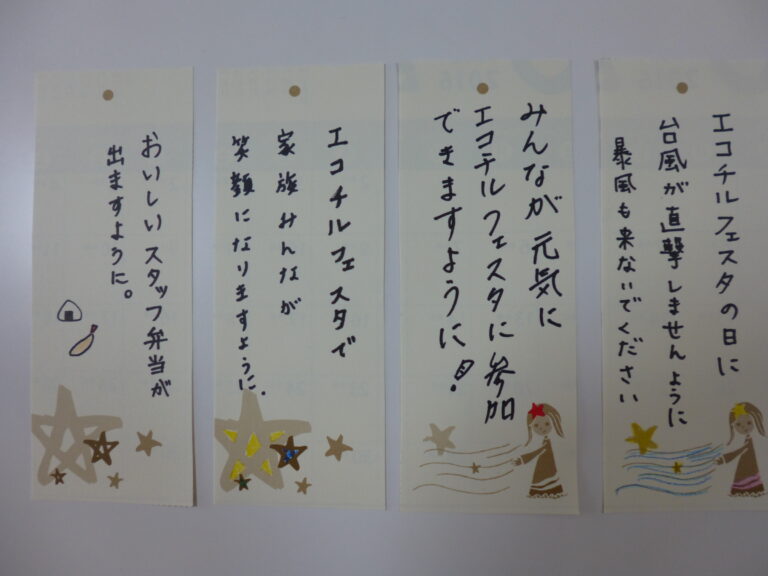 おいしいスタッフ弁当が
出ますように。
エコチルフェスタで
家族みんなが
笑顔になりますように.
みんなが元気に
エコチルフェスタに参加
できますように!
エコチルフェスタの日に
台風が直撃しませんように
暴風も来ないでください